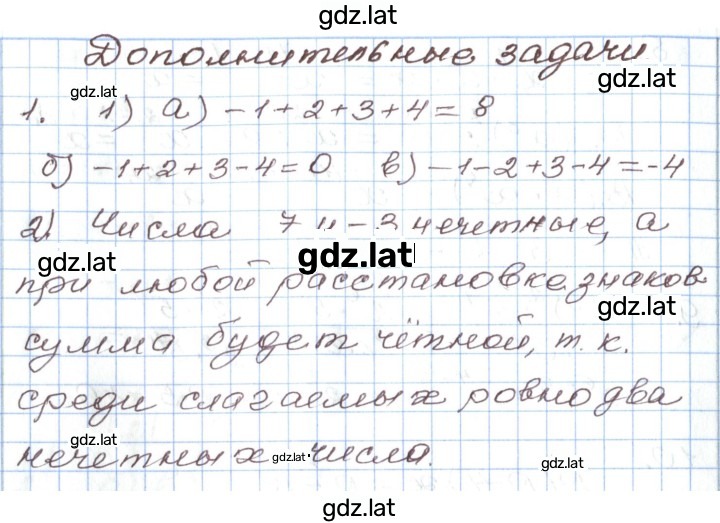 gdz.lat
Дополнительные задачи
gdz.lat
gdz.lat
1. 1) а) -1+2+3+4=8
б) -1+2+3-4=0 в) -1-2+3-4=-4
2) Числа 7 и -3 нечетные, а
gdz.lat
gdz.lat
при любой расстановке знаков
gdz.lat
сумма будет чётной, т.к.
среди слагаемых ровно два
gdz.lat
нечетных числа.
gdz.lat
gdz.lat
gdz.lat